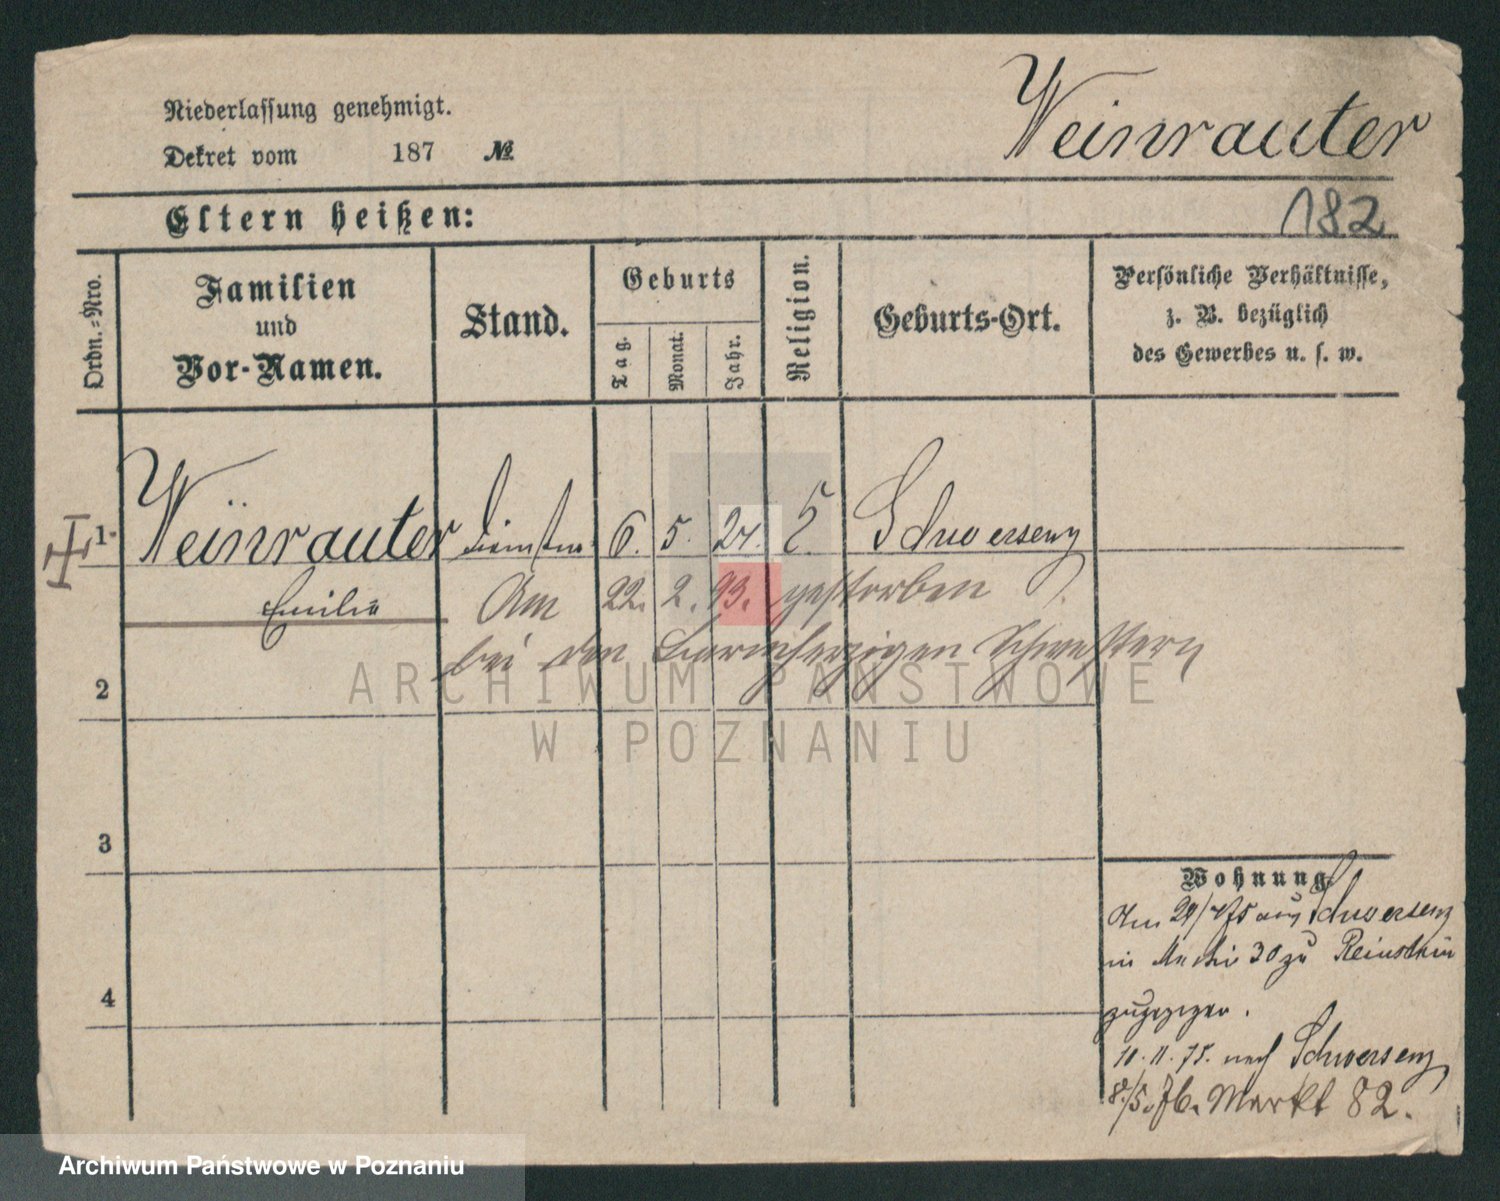 Weinrauter
Niederlassung genehmigt.
Dekret vom 187 №
182
Eltern heißen:
Ordn.-Nro.
Familien
und
Vor-Namen.
Stand.
Geburts
Tag.
Monat.
Jahr.
Religion.
Geburts-Ort.
Persönliche Verhältnisse,
z. B. bezüglich
des Gewerbes u. s. w.
1. Weinrauter 6. 5. 24. Schwersenz
Emilie Am 22. 2. 93. gestorben
bei den barmherzigen Schwestern
2
3
4
Wohnung.
Am 29/ 75 aus Schwersenz
30 zu
zugezogen.
10. 11. 75. nach Schwersenz
8./5. 76. Markt 82.
ARCHIWUM PAŃSTWOWE
W POZNANIU
Archiwum Państwowe w Poznaniu